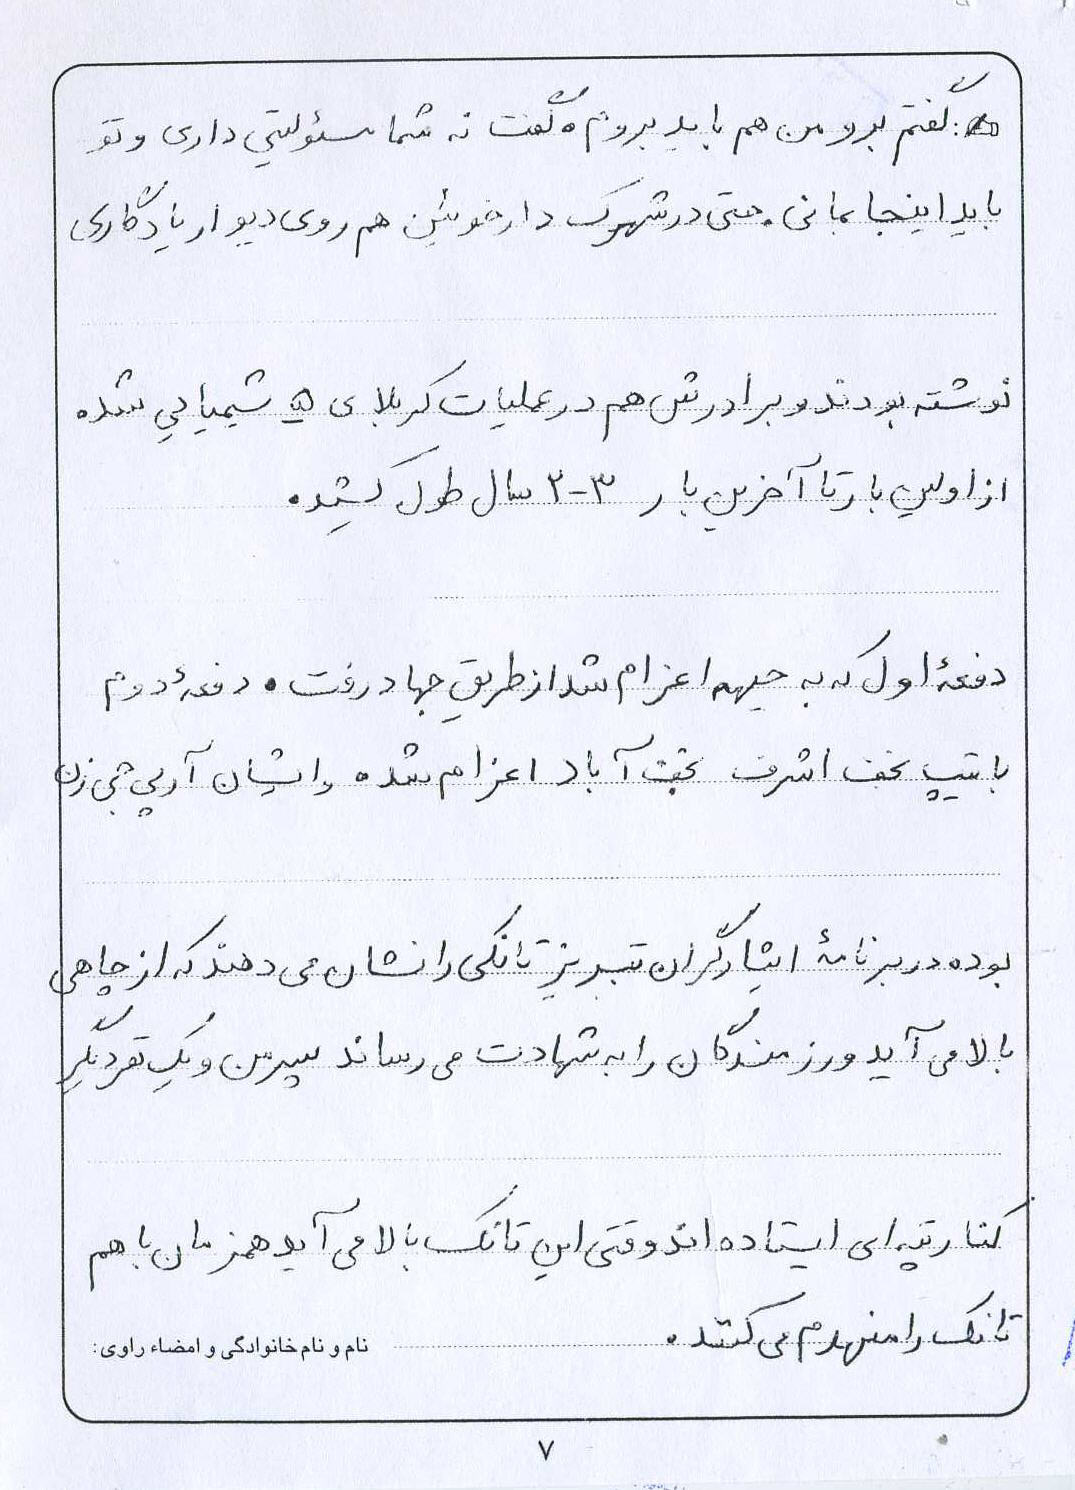 : گفتم برو من هم باید بروم. گفت نه شما مسئولیتی داری و تو
باید اینجا بمانی. حتی در شهرک دارخوئین هم روی دیوار یادگاری
نوشته بودند و برادرش هم در عملیات کربلای ۵ شیمیایی شده
از اولین بار تا آخرین بار ۳-۲ سال طول کشید.
دفعهٔ اول که به جبهه اعزام شد از طریق جهاد رفت. دفعهٔ دوم
با تیپ نجف اشرف نجف آباد اعزام شد. ایشان آرپی جی زن
بوده در برنامهٔ ایثارگران تبریز تانکی را نشان می دهند که از چاهی
بالا می آید و رزمندگان را به شهادت می رساند سپس من و یک نفر دیگر
کنار تپه ای ایستاده اند وقتی این تانک بالا می آید همزمان با هم
تانک را منهدم می کنند.
نام و نام خانوادگی و امضاء راوی:
۷